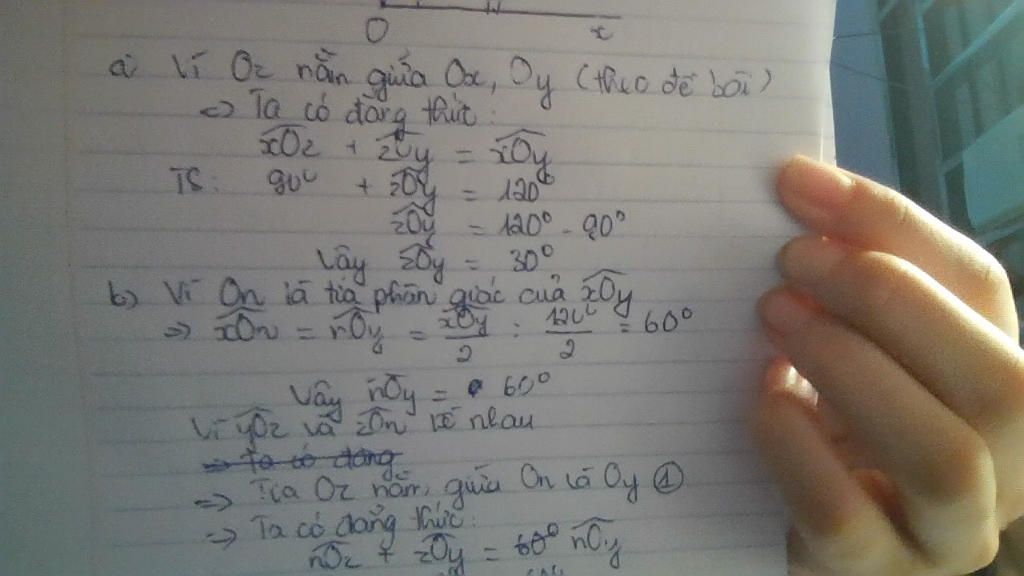 O x
a) Vì Oz nằm giữa Ox, Oy (theo đề bài)
=> Ta có đẳng thức:
xOz + zOy = xOy
TS: 90⁰ + zOy = 120⁰
zOy = 120⁰ - 90⁰
Vậy zOy = 30⁰
b) Vì On là tia phân giác của xOy
=> xOn = nOy = xOy/2 = 120⁰/2 = 60⁰
Vậy nOy = 60⁰
Vì yOz và zOn kề nhau
=> Ta có đẳng
=> Tia Oz nằm giữa On và Oy ①
=> Ta có đẳng thức:
nOz + zOy = 60⁰ nOy